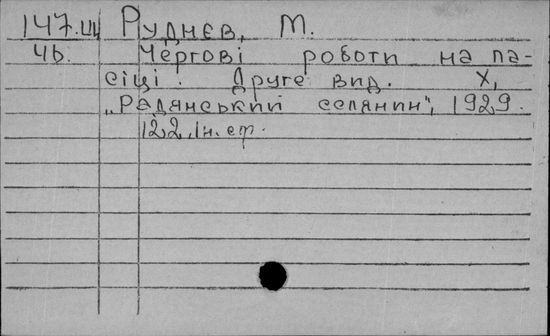 147.Ш Руднєв, М.
ЧБ. Чергові роботи на па-
сіці. Друге вид. Х,
„Радянський селянин", 1929.
122, Ін. ст.